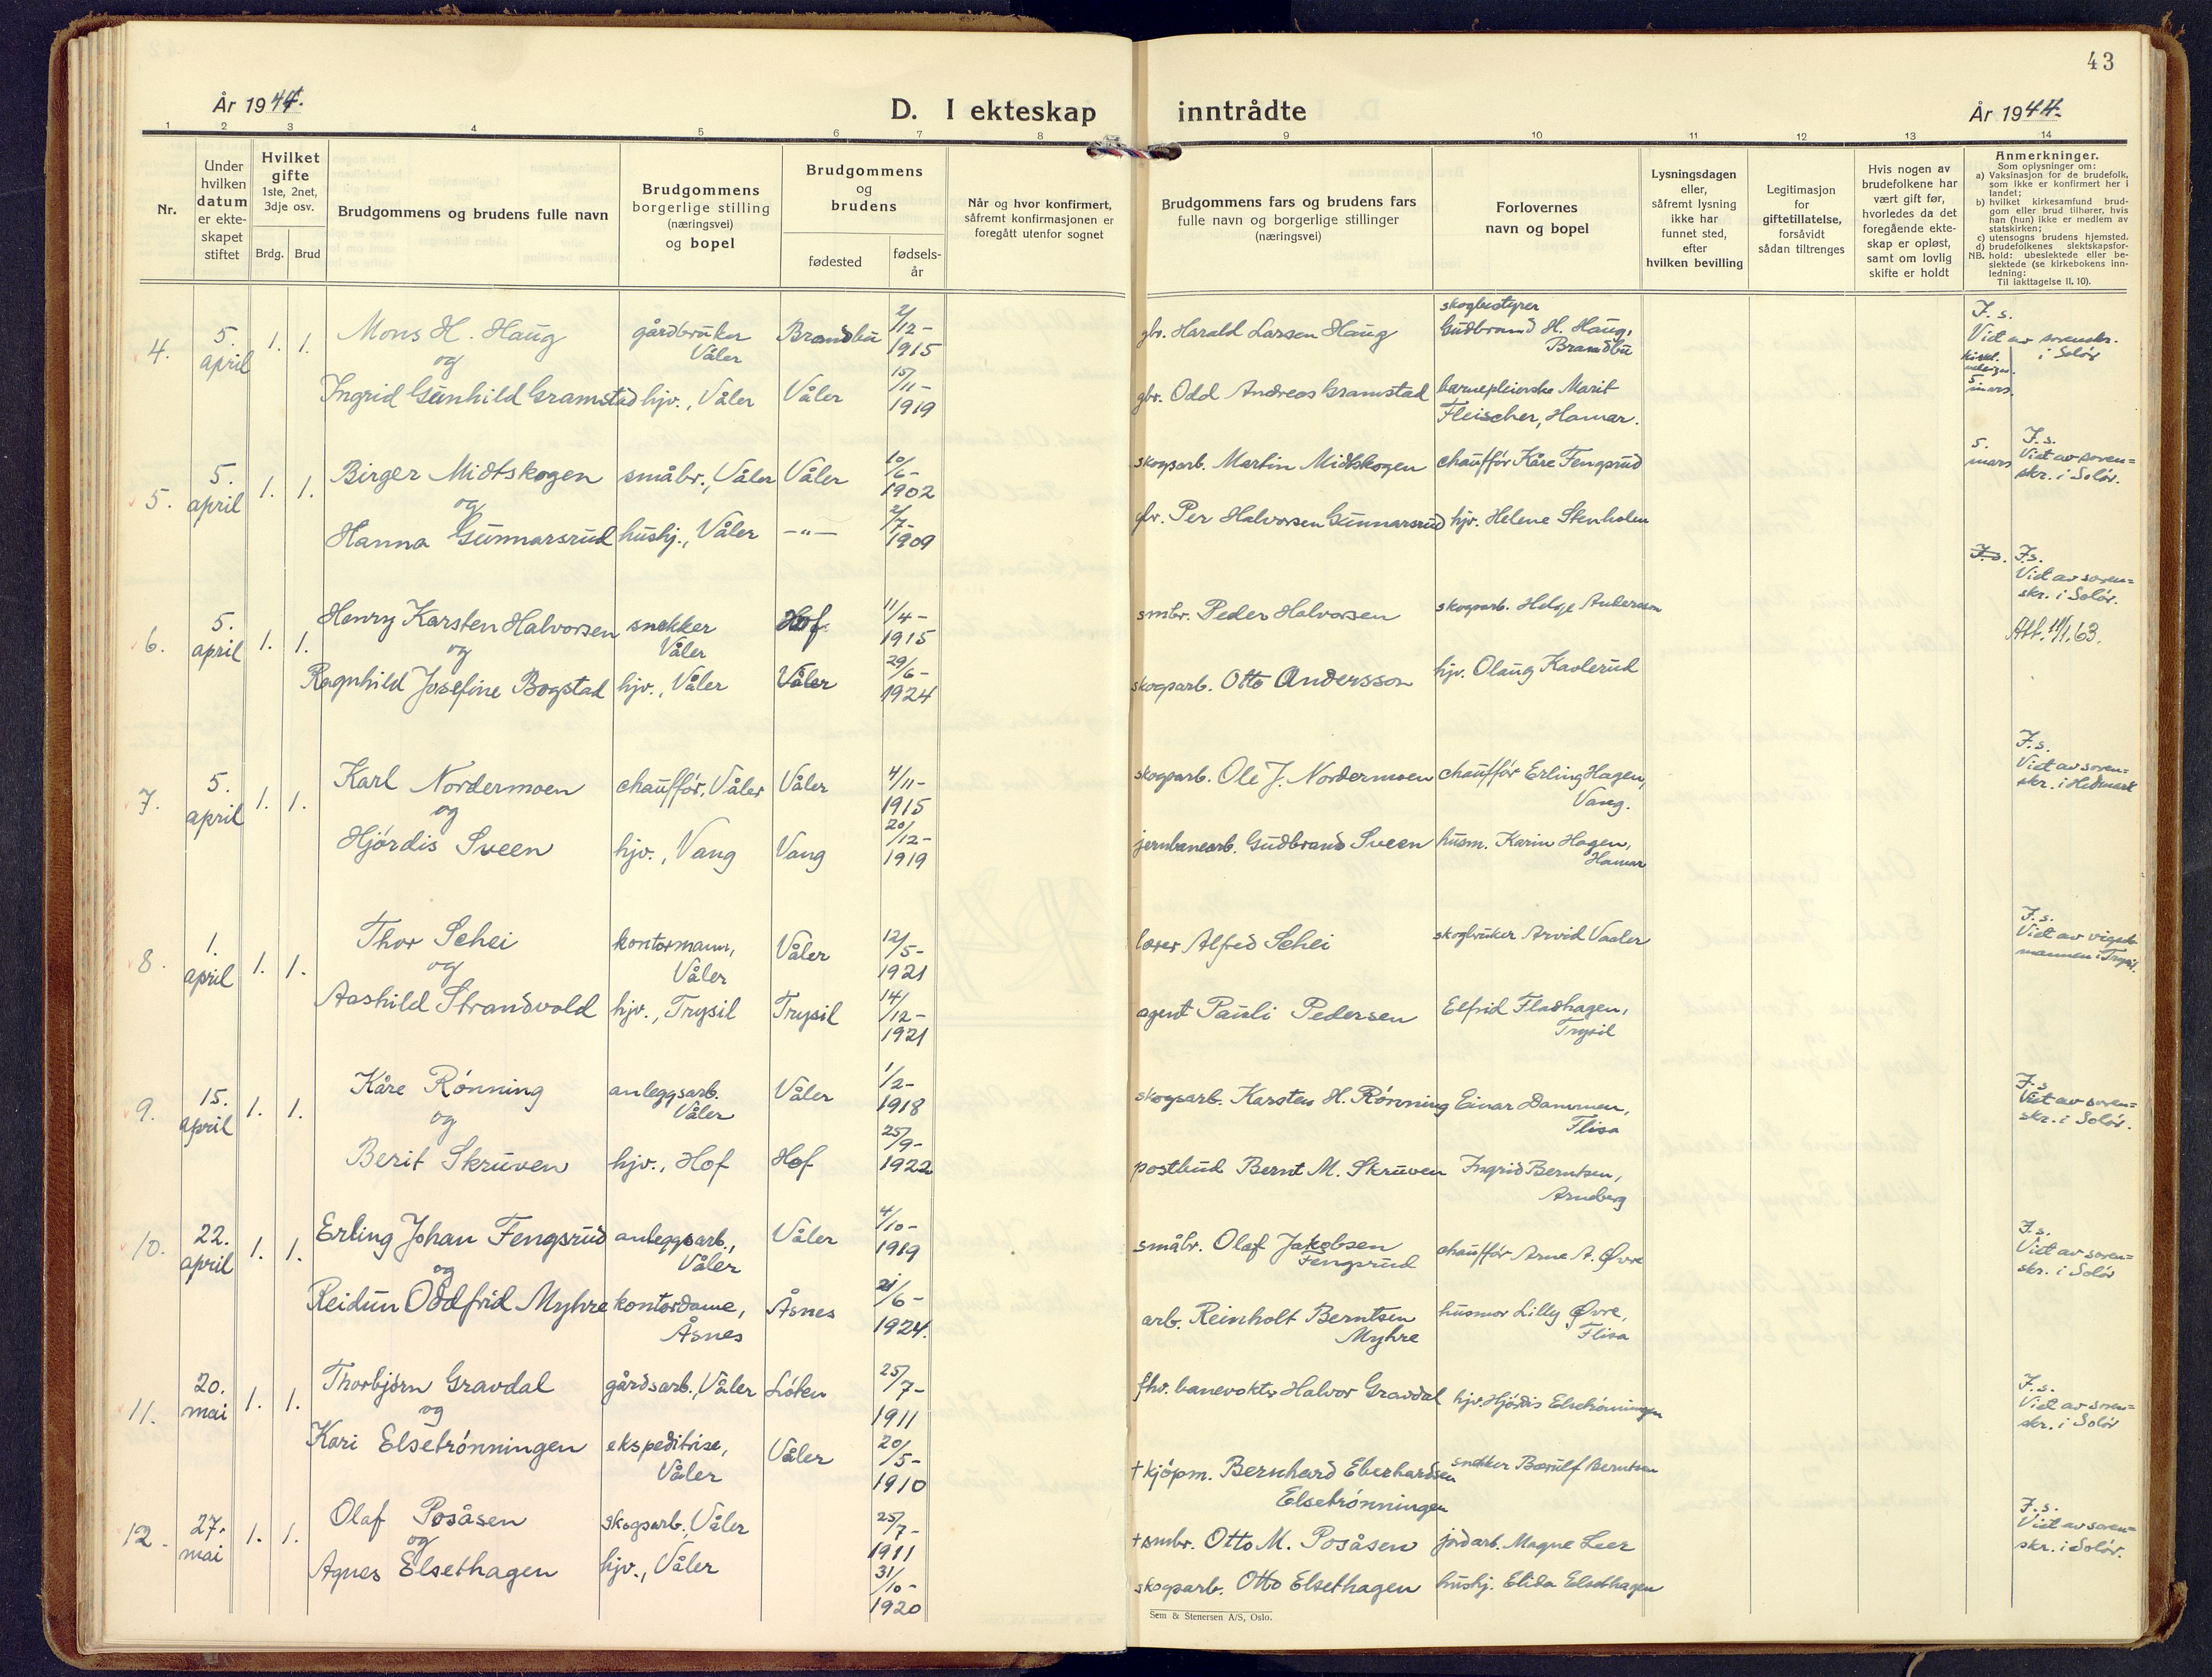 43
År 1944.
D. I ekteskap inntrådte
År 1944.
1 2 3 4 5 6 7 8 9 10 11 12 13 14
Nr.
Under
hvilken
datum
er ekte-
skapet
stiftet
Hvilket
gifte
1ste, 2net,
3dje osv.
Brdg. Brud
Brudgommens og brudens fulle navn
Brudgommens
borgerlige stilling
(næringsvei)
og bopel
Brudgommens
og
brudens
fødested
fødsels-
år
Når og hvor konfirmert,
såfremt konfirmasjonen er
foregått utenfor sognet
Brudgommens fars og brudens fars
fulle navn og borgerlige stillinger
(næringsvei)
Forlovernes
navn og bopel
Lysningsdagen
eller,
såfremt lysning
ikke har
funnet sted,
efter
hvilken bevilling
Legitimasjon
for
giftetillatelse,
forsåvidt
sådan tiltrenges
Hvis nogen av
brudefolkene har
vært gift før,
hvorledes da det
foregående ekte-
skap er opløst,
samt om lovlig
skifte er holdt
Anmerkninger.
Som oplysninger om:
a) Vaksinasjon for de brudefolk,
som ikke er konfirmert her i
landet;
b) hvilket kirkesamfund brud-
gom eller brud tilhører, hvis
han (hun) ikke er medlem av
statskirken;
c) utensogns brudens hjemsted.
d) brudefolkenes slektskapsfor-
NB. hold: ubeslektede eller be-
slektede (se kirkebokens inn-
ledning:
Til iakttagelse II, 10).
4. 5. april 1. 1.
Mons H. Haug
og
Ingrid Gunhild Gramstad
gårdbruker
Våler
hjv., Våler
Brandbu
Våler
2/12-
1915
15/11-
1919
gbr. Harald Larsen Haug
gbr. Odd Andreas Gramstad
skogbestyrer
Gudbrand H. Haug,
Brandbu
barnepleierske Marit
Fleischer, Hamar.
F. s.
Viet av sorenskr.
i Solør
5 mars
5. 5. april 1. 1.
Birger Midtskogen
og
Hanna Gunnarsrud
småbr., Våler
hushj., Våler
Våler
-"-
10/6-
1902
2/7-
1909
skogsarb. Martin Midtskogen
gbr. Per Halvorsen Gunnarsrud
chauffør Kåre Fengsrud
hjv. Helene Stenholen
5. mars
F. s.
Viet av soren=
skr. i Solør.
6. 5. april 1. 1.
Henry Karsten Halvorsen
og
Ragnhild Josefine Bogstad
snekker
Våler
hjv., Våler
Hof
Våler
11/4-
1915
29/6-
1924
smbr. Peder Halvorsen
skogsarb. Otto Andersson
skogsarb. Helge Andersson
hjv. Olaug Kaalerud
F. s. F. s.
Viet av soren=
skr. i Solør.
Att. 11/1.63.
7. 5. april 1. 1.
Karl Nordermoen
og
Hjørdis Sveen
chauffør, Våler
hjv., Vang
Våler
Vang
4/11-
1915
20/12-
1919
skogsarb. Ole J. Nordermoen
jernbanearb. Gudbrand Sveen
chauffør Erling Hagen,
Vang.
husm. Karin Hagen,
Hamar
F. s.
Viet av soren=
skr. i Hedmark
8. 1. april 1. 1.
Thor Schei
og
Aashild Strandvold
kontormann,
Våler
hjv., Trysil
Våler
Trysil
12/5-
1921
14/12-
1921
lærer Alfred Schei
agent Pauli Pedersen
skogbruker Arvid Vaaler
Elfrid Fladhagen,
Trysil
F. s.
Viet av vigsels
mannen i Trysil.
9. 15. april 1. 1.
Kåre Rønning
og
Berit Skruven
anleggsarb.
Våler
hjv., Hof
Våler
Hof
1/2-
1918
25/9-
1922
skogsarb. Karsten H. Rønning
postbud Bernt M. Skruven
Einar Dammen,
Flisa
Ingrid Berntsen,
Arneberg
F. s.
Viet av soren=
skr. i Solør.
10. 22. april 1. 1.
Erling Johan Fengsrud
og
Reidun Oddfrid Myhre
anleggsarb.,
Våler
kontordame,
Åsnes
Våler
Åsnes
4/10-
1919
21/6-
1924.
småbr. Olaf Jakobsen
Fengsrud
arb. Reinholt Berntsen
Myhre
chauffør Arne A. Øvre
husmor Lilly Øvre,
Flisa
F. s.
Viet av soren=
skr. i Solør
11. 20. mai 1. 1.
Thorbjørn Gravdal
og
Kari Elsetrønningen
gårdsarb., Våler
ekspeditrise,
Våler
Løten
Våler
25/7-
1911
20/5-
1910
fhv. banevokter Halvor Gravdal
+ kjøpm. Bernhard Eberhardsen
Elsetrønningen
hjv. Hjørdis Elsetrønningen
snekker Bernulf Berntsen
F. s.
Viet av soren=
skr. i Solør
12. 27. mai 1. 1.
Olaf Posåsen
og
Agnes Elsethagen
skogsarb., Våler
hjv., Våler
25/7-
1911
31/10-
1920
+ smbr. Otto M. Posåsen
skogsarb. Otto Elsethagen
jordarb. Magne Leer
hushj. Elida Elsethagen
F. s.
Viet av soren=
skr. i Solør.
Sem & Stenersen A/S, Oslo.